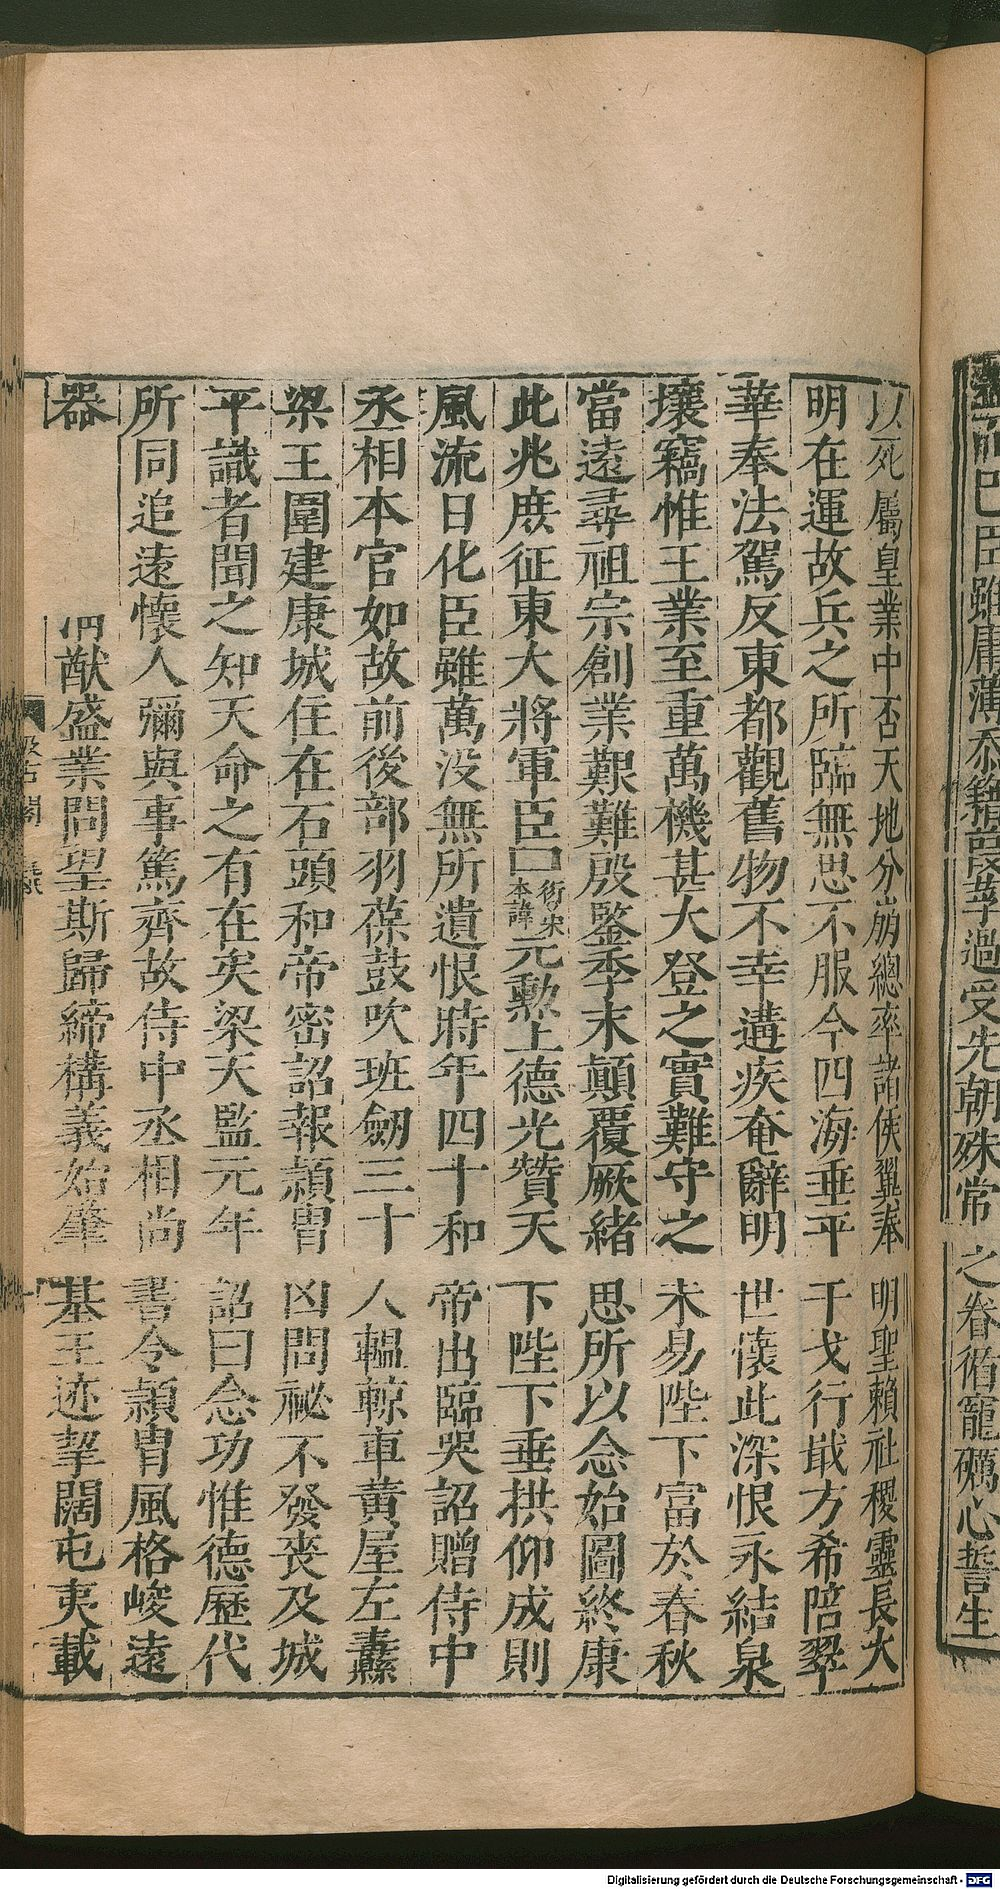 以死屬皇業中否天地分崩總率諸侯翼奉明聖賴社稷靈長大
明在運故兵之所臨無思不服今四海垂平干戈行戢方希陪翠
華奉法駕反東都觀舊物不幸遘疾奄辭明世懷此深恨永結泉
壤竊惟王業至重萬機甚大登之實難守之未易陛下富於春秋
當遠尋祖宗創業艱難殷鑒季末顛覆厥緒思所以念始圖終康
此兆庶征東大將軍臣囗衍宋本諱元勲上德光贊天下陛下垂拱仰成則
風流日化臣雖萬没無所遺恨時年四十和帝出臨哭詔贈侍中
丞相本官如故前後部羽葆鼓吹班劔三十人轀輬車黄屋左纛
梁王圍建康城住在石頭和帝密詔報頴胄凶問祕不發喪及城
平識者聞之知天命之有在矣梁天監元年詔曰念功惟德歷代
所同追遠懷人彌與事篤齊故侍中丞相尚書令頴胄風格峻遠
器 猷盛業問望斯歸締構義始肇基王迹挈闊屯夷載
汲古閣
巴臣雖庸薄忝籍葭莩過受先朝殊常之眷循寵礪心誓生
Digitalisierung gefördert durch die Deutsche Forschungsgemeinschaft - DFG